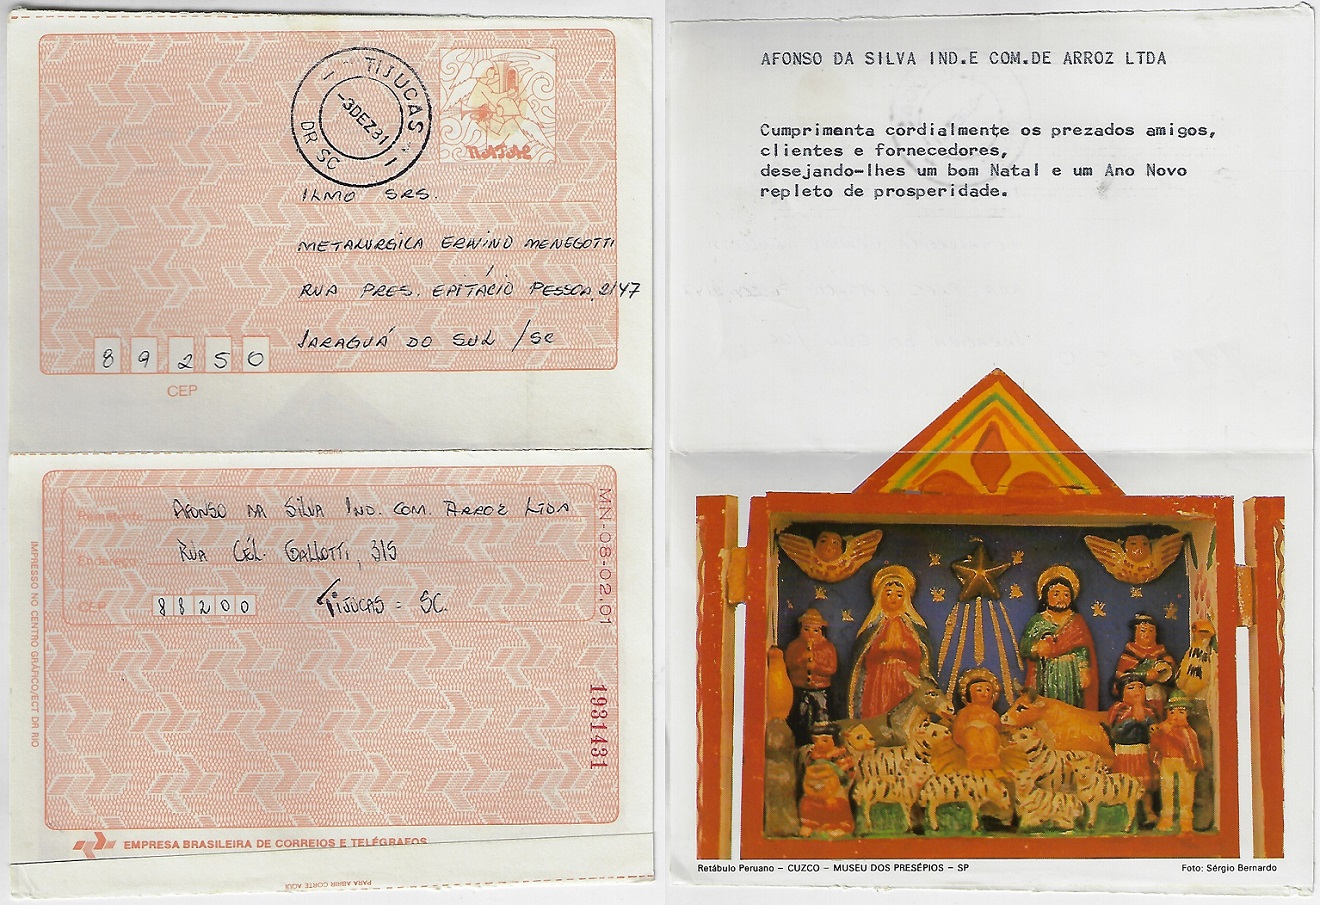 TIJUCAS
-3DEZ81
DR SC
NATAL
ILMO SRS.
METALURGICA ERWINO MENEGOTTI
RUA PRES. EPITÁCIO PESSOA, 2147
JARAGUÁ DO SUL /SC
89250
CEP
DOBRA
Remetente
AFONSO DA SILVA IND. COM. ARROZ LTDA
Endereço
RUA CÉL. GALLOTTI, 315
CEP
88200
TIJUCAS - SC.
MN-08-02.01
1981431
IMPRESSO NO CENTRO GRÁFICO/ECT DR RIO
EMPRESA BRASILEIRA DE CORREIOS E TELÉGRAFOS
PARA ABRIR CORTE AQUI
AFONSO DA SILVA IND.E COM.DE ARROZ LTDA
Cumprimenta cordialmente os prezados amigos,
clientes e fornecedores,
desejando-lhes um bom Natal e um Ano Novo
repleto de prosperidade.
Retábulo Peruano – CUZCO – MUSEU DOS PRESÉPIOS – SP
Foto: Sérgio Bernardo